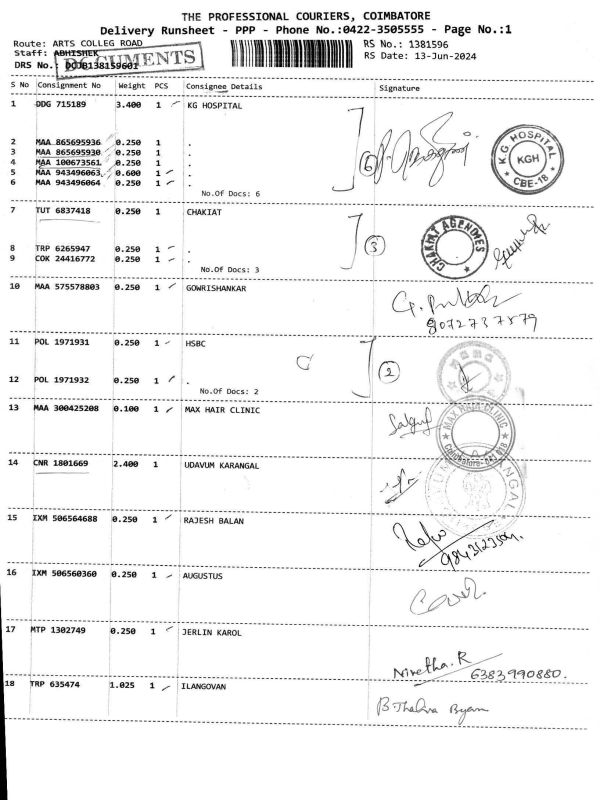 THE PROFESSIONAL COURIERS, COIMBATORE
Delivery Runsheet - PPP - Phone No.:0422-3505555 - Page No.:1
Route: ARTS COLLEG ROAD
RS No.: 1381596
Staff: ABHISHEK
RS Date: 13-Jun-2024
DRS No.: DCJB138159601
DOCUMENTS
S No Consignment No Weight PCS Consignee Details Signature
1 DDG 715189 3.400 1 KG HOSPITAL
2 MAA 865695936 0.250 1 .
3 MAA 865695930 0.250 1 .
4 MAA 100673561 0.250 1 .
5 MAA 943496063 0.600 1 .
6 MAA 943496064 0.250 1 .
No.Of Docs: 6
6
K.G. HOSPITAL
KGH
CBE-18
7 TUT 6837418 0.250 1 CHAKIAT
8 TRP 6265947 0.250 1 .
9 COK 24416772 0.250 1 .
No.Of Docs: 3
3
CHAKIAT AGENCIES
10 MAA 575578803 0.250 1 GOWRISHANKAR
8072737579
11 POL 1971931 0.250 1 HSBC
12 POL 1971932 0.250 1 .
No.Of Docs: 2
2
13 MAA 300425208 0.100 1 MAX HAIR CLINIC
MAX HAIR CLINIC
14 CNR 1801669 2.400 1 UDAVUM KARANGAL
15 IXM 506564688 0.250 1 RAJESH BALAN
16 IXM 506560360 0.250 1 AUGUSTUS
17 MTP 1302749 0.250 1 JERLIN KAROL
Nivetha.R
6383990880.
18 TRP 635474 1.025 1 ILANGOVAN